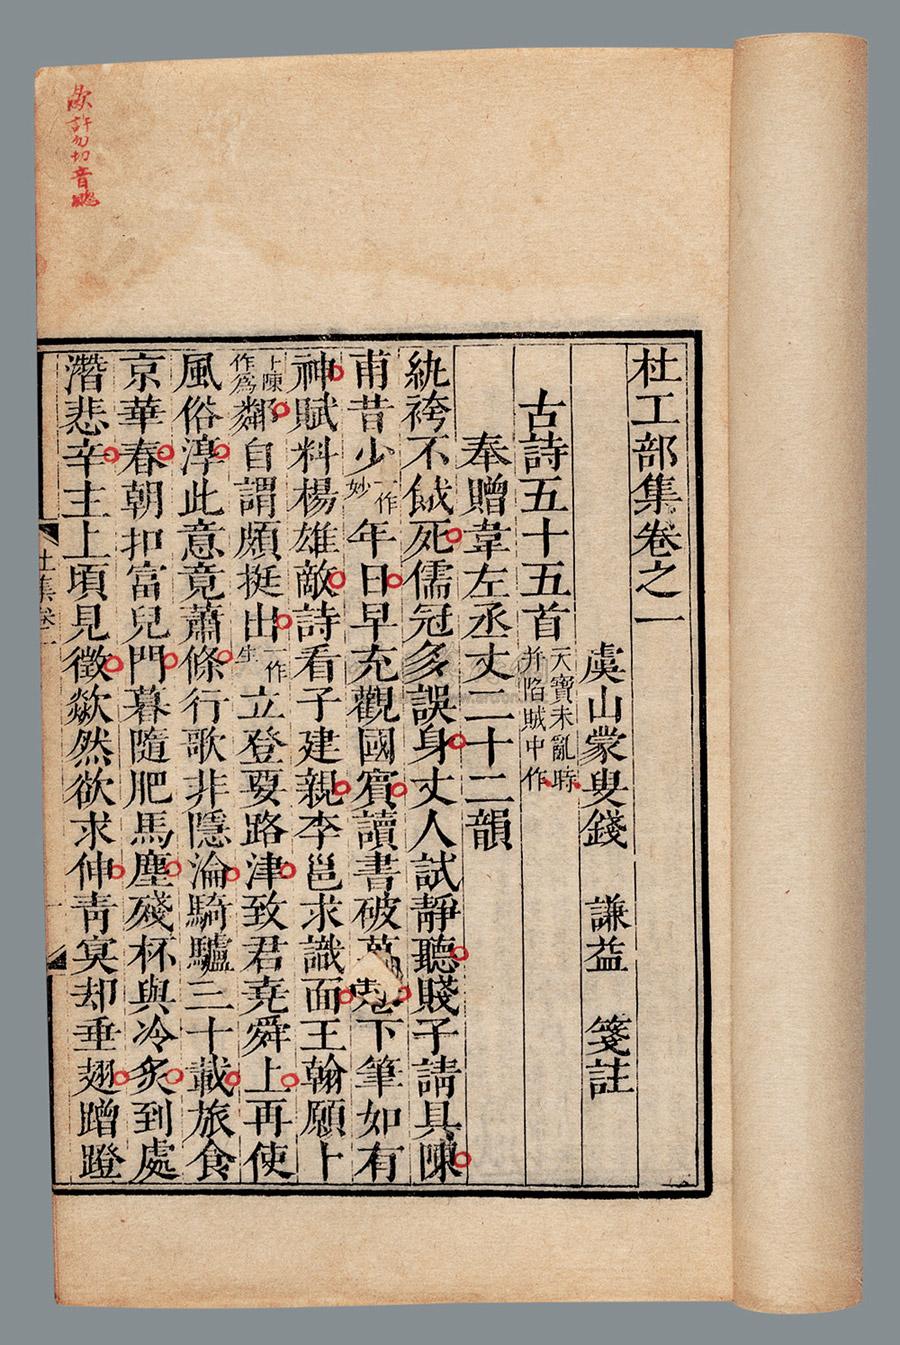 杜工部集卷之一
虞山蒙叟錢 謙益 箋註
古詩五十五首
天寶未亂時
并陷賊中作
奉贈韋左丞丈二十二韻
紈袴不餓死儒冠多誤身丈人試靜聽賤子請具陳
甫昔少一作妙年日早充觀國賓讀書破萬卷下筆如有
神賦料楊雄敵詩看子建親李邕求識面王翰願卜
卜陳作為鄰自謂頗挺出一作生立登要路津致君堯舜上再使
風俗淳此意竟蕭條行歌非隱淪騎驢三十載旅食
京華春朝扣富兒門暮隨肥馬塵殘杯與冷炙到處
潛悲辛主上頃見徵歘然欲求伸青冥却垂翅蹭蹬
杜集卷一
許勿切音